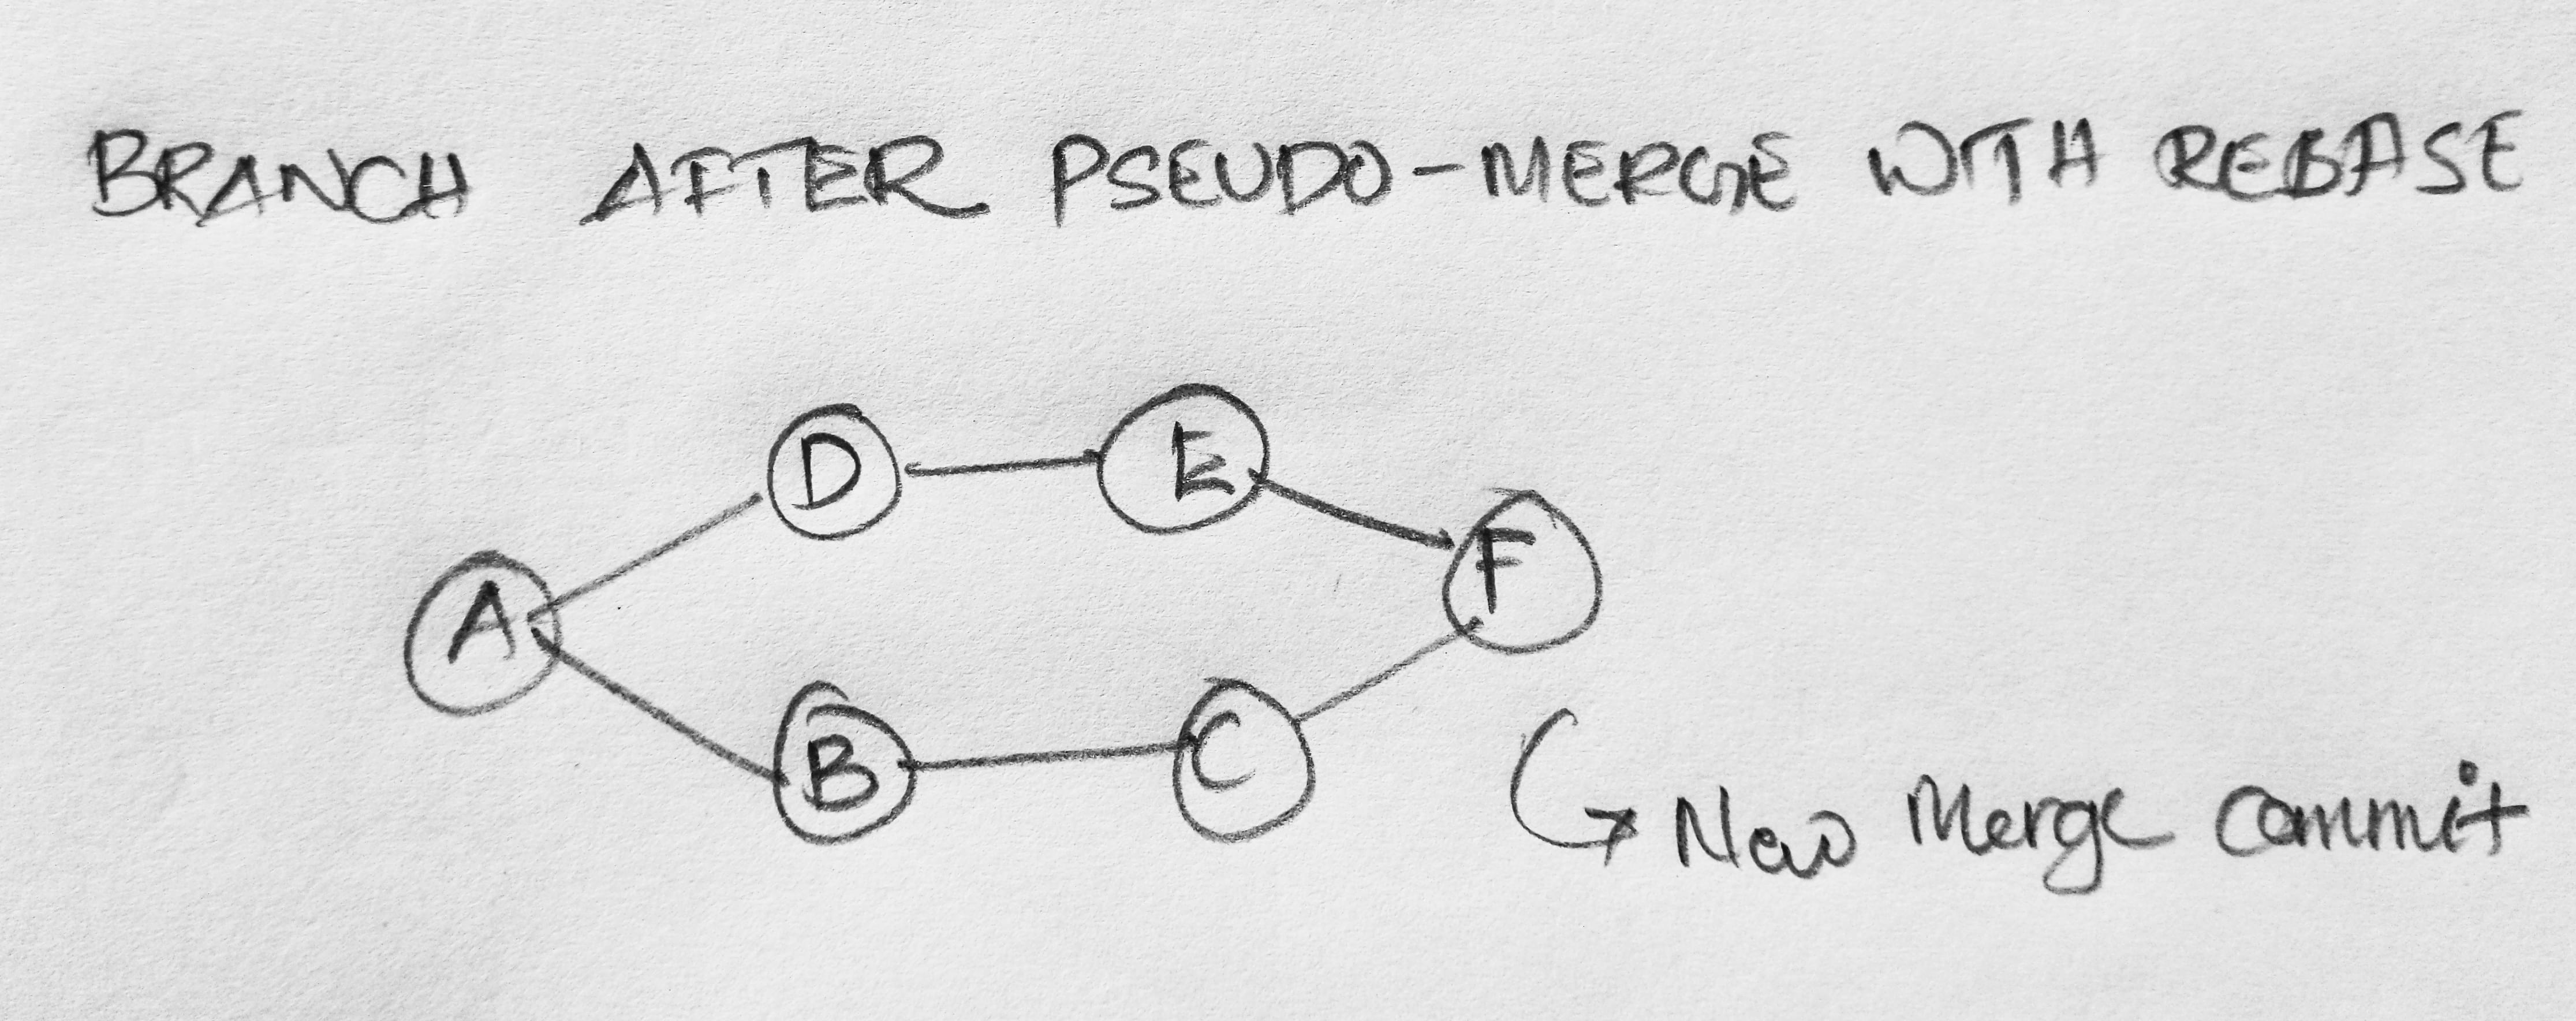 BRANCH AFTER PSEUDO-MERGE WITH REBASE
D E
A F
B C
New Merge commit